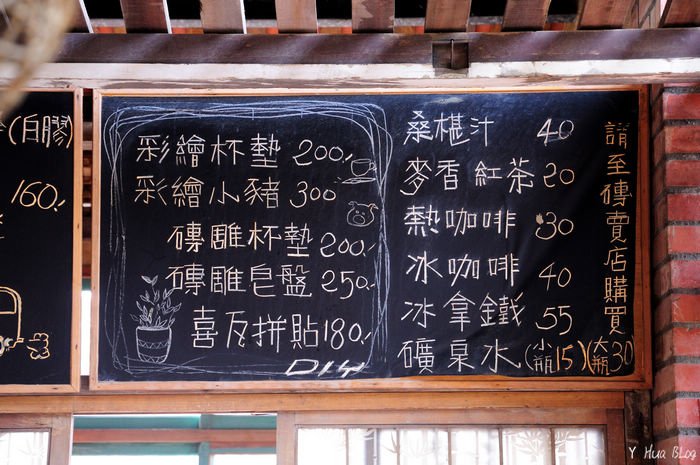 (白膠)
160.
彩繪杯墊 200.
彩繪小豬 300
磚雕杯墊 200.
磚雕皂盤 250.
喜瓦拼貼 180.
DIY
桑椹汁 40
麥香紅茶 20
熱咖啡 30
冰咖啡 40
冰拿鐵 55
礦泉水 (小瓶15)(大瓶30)
請至磚賣店購買
Y Hua Blog